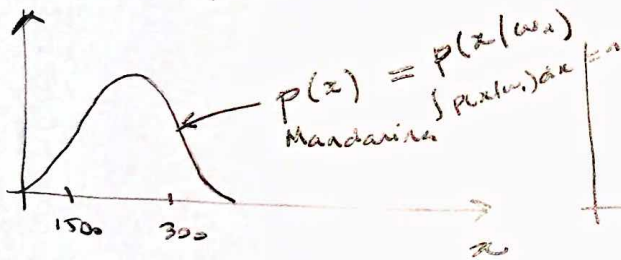 p(x) = p(x|ω₁)
Mandarina ∫ p(x|ω₁)dx = 1
1500
300
x